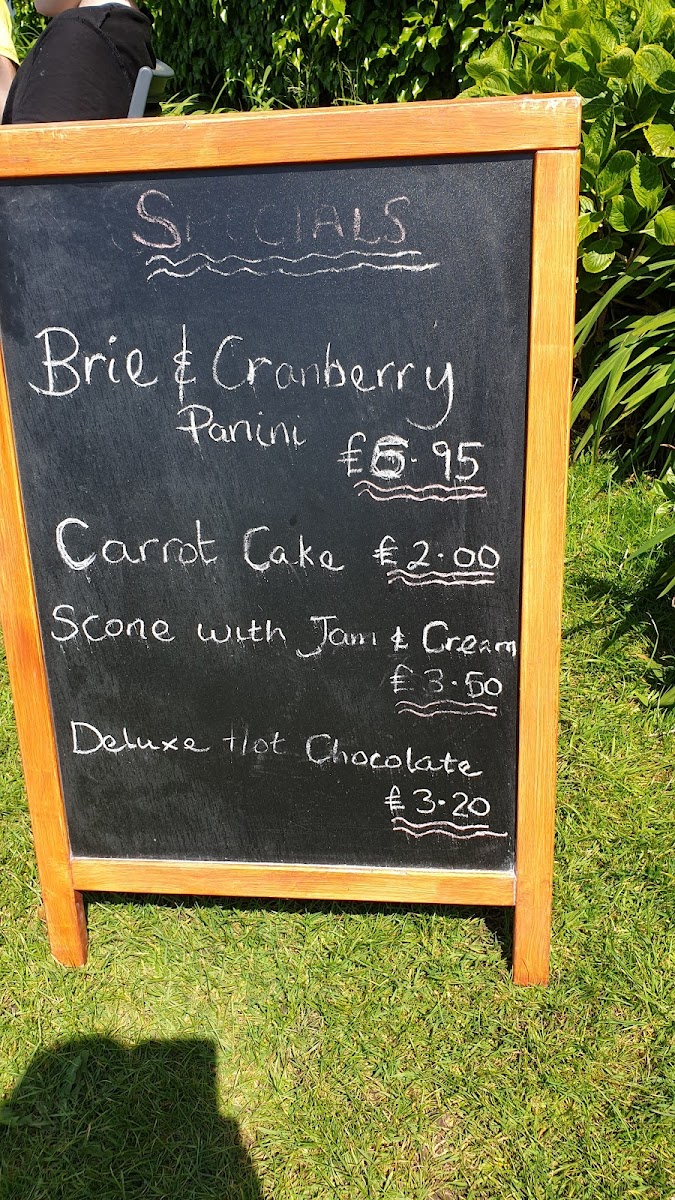 SPECIALS
Brie & Cranberry
Panini
£6.95
Carrot Cake £2.00
Scone with Jam & Cream
£3.50
Deluxe Hot Chocolate
£3.20